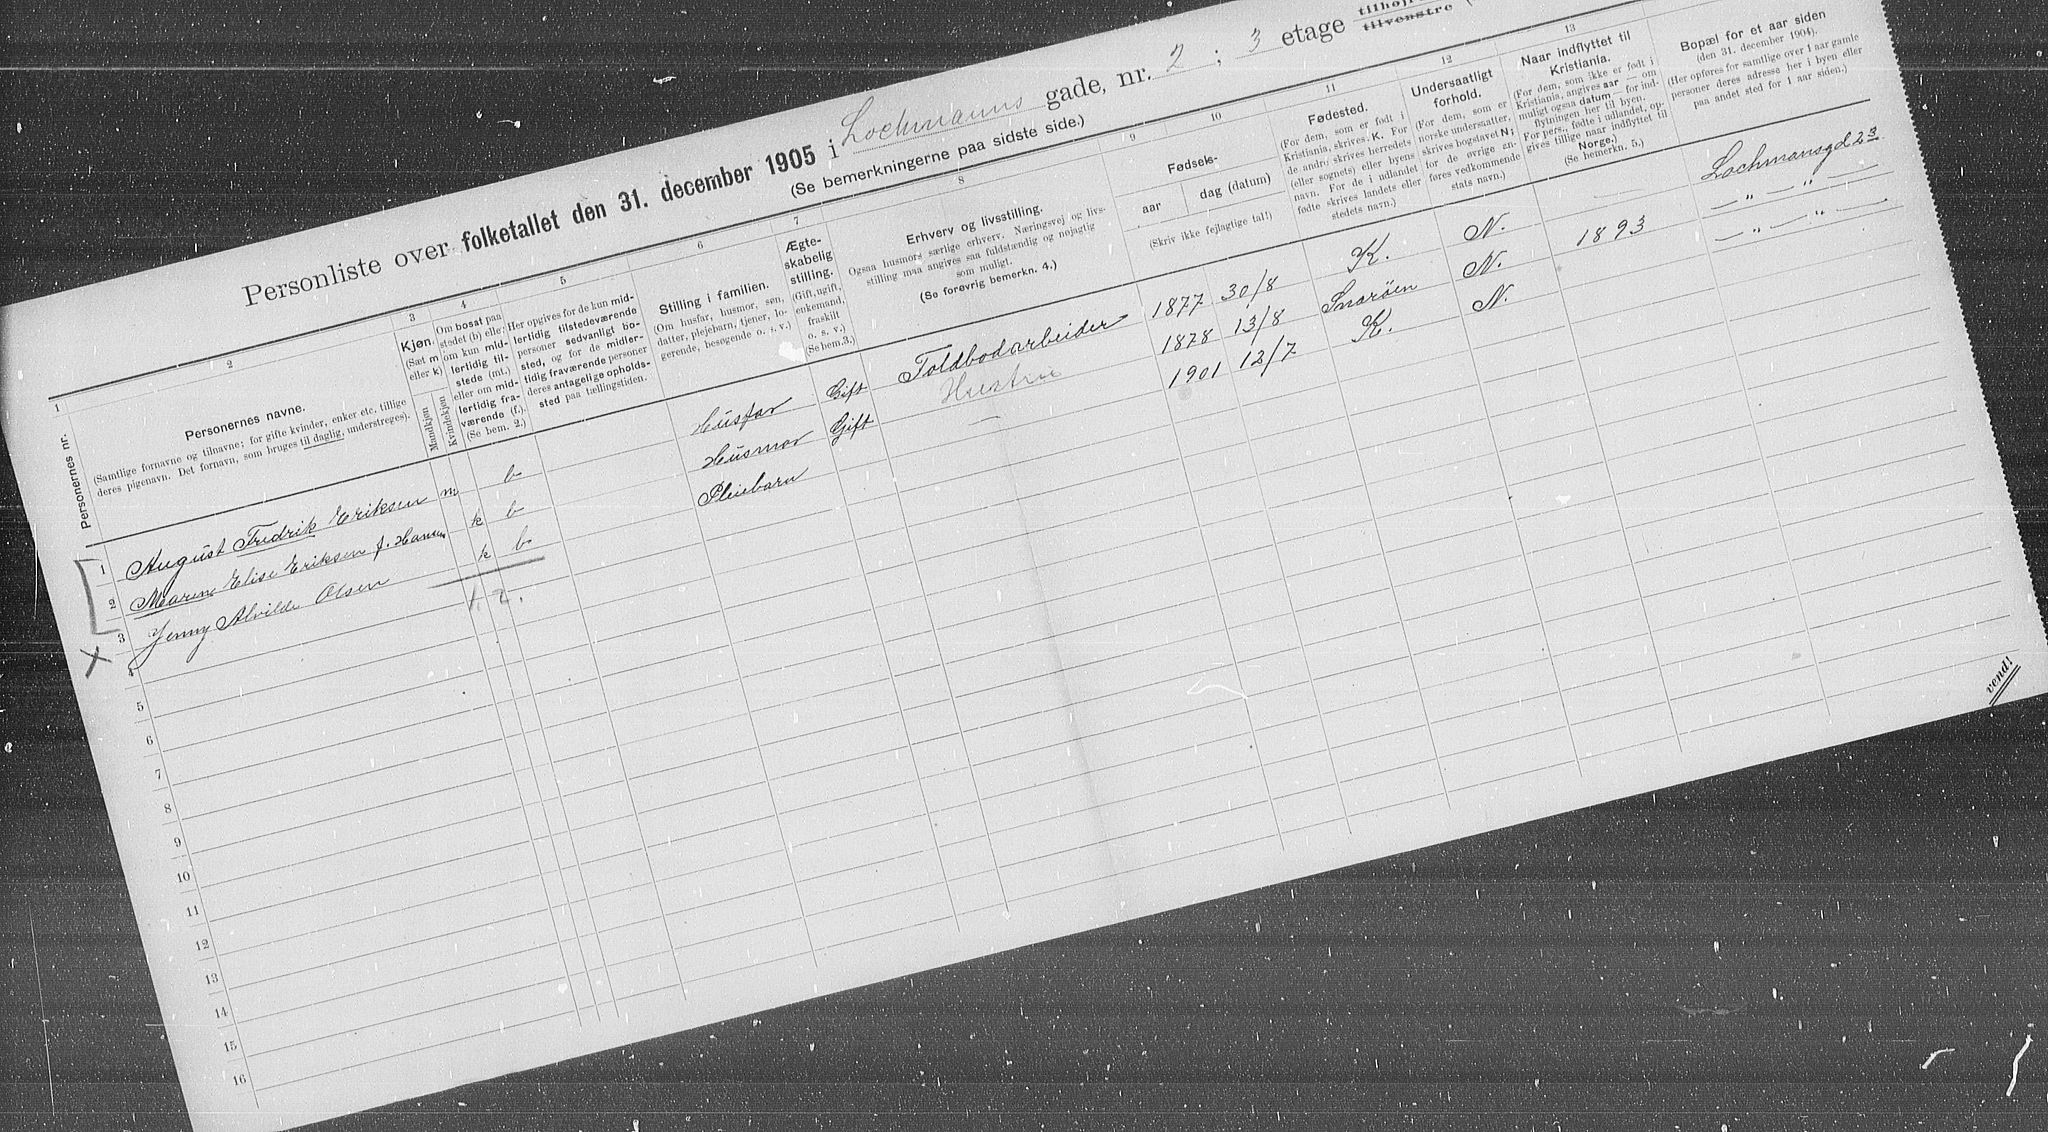 Personliste over folketallet den 31. december 1905 i Lochmanns gade, nr. 2 ; 3 etage tilhøjre tilvenstre
(Se bemerkningerne paa sidste side.)
1 2 3 4 5 6 7 8 9 10 11 12 13
Personernes nr.
Personernes navne.
(Samtlige fornavne og tilnavne; for gifte kvinder, enker etc. tillige
deres pigenavn. Det fornavn, som bruges til daglig, understreges).
Kjøn.
(Sæt m
eller k)
Mandkjøn
Kvindekjøn
Om bosat paa
stedet (b) eller
om kun mid-
lertidig til-
stede (mt.)
eller om mid-
lertidig fra-
værende (f.).
(Se bem. 2.)
Her opgives for de kun mid-
lertidig tilstedeværende
personer sedvanligt bo-
sted, og for de midler-
tidig fraværende personer
deres antagelige opholds-
sted paa tællingstiden.
Stilling i familien.
(Om husfar, husmor, søn,
datter, plejebarn, tjener, lo-
gerende, besøgende o. s. v.)
Ægte-
skabelig
stilling.
(Gift, ugift,
enkemand,
fraskilt
o. s. v.)
(Se bem. 3.)
Erhverv og livsstilling.
Ogsaa husmors særlige erhverv. Næringsvej og livs-
stilling maa angives saa fuldstændig og nøjagtig
som muligt.
(Se forøvrig bemerkn. 4.)
Fødsels-
aar
dag (datum)
(Skriv ikke fejlagtige tal!)
Fødested.
(For dem, som er født i
Kristiania, skrives: K. For
de andre skrives herredets
(eller sognets) eller byens
navn. For de i udlandet
fødte skrives landets eller
stedets navn.)
Undersaatligt
forhold.
(For dem, som er
norske undersaatter,
skrives bogstavet N;
for de øvrige an-
føres vedkommende
stats navn.)
Naar indflyttet til
Kristiania.
(For dem, som ikke er født i
Kristiania, angives aar — om
muligt ogsaa datum — for ind-
flytningen her til byen.
For pers., fødte i udlandet, op-
gives tillige naar indflyttet til
Norge.)
(Se bemerkn. 5.)
Bopæl for et aar siden
(den 31. december 1904).
(Her opføres for samtlige over 1 aar gamle
personer deres adresse her i byen eller
paa andet sted for 1 aar siden.)
1 August Fredrik Eriksen m b Husfar Gift Toldbodarbeider 1877 30/8 K. N. — Lochmansgd 23
2 Maren Elise Eriksen f. Hansen k b Husmor Gift Hustru 1878 13/8 Snarøen N. 1893 — " — " —
3 Jenny Alvilde Olsen k b Pleiebarn — 1901 12/7 K. N. — " — " —
1. 2.
4
5
6
7
8
9
10
11
12
13
14
15
16
vend!